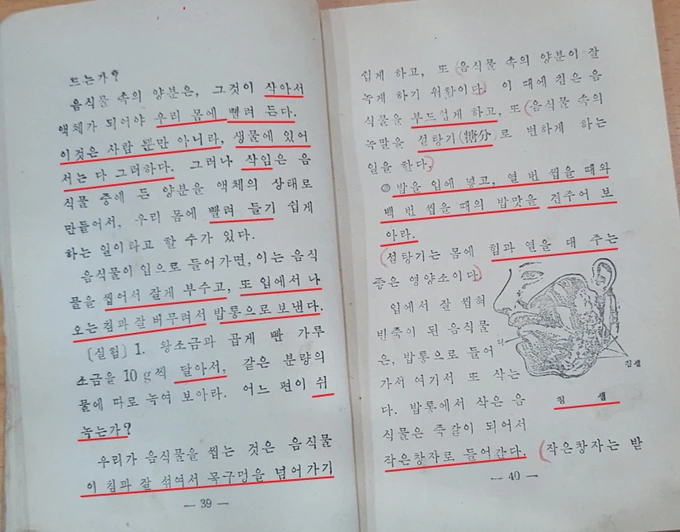 드는가?
음식물 속의 양분은, 그것이 삭아서
액체가 되어야 우리 몸에 빨려 든다.
이것은 사람 뿐만 아니라, 생물에 있어
서는 다 그러하다. 그러나 삭임은 음
식물 중에 든 양분을 액체의 상태로
만들어서, 우리 몸에 빨려 들기 쉽게
하는 일이라고 할 수가 있다.
음식물이 입으로 들어가면, 이는 음식
물을 씹어서 잘게 부수고, 또 입에서 나
오는 침과 잘 버무려서 밥통으로 보낸다.
[실험] 1. 왕소금과 곱게 빤 가루
소금을 10g씩 달아서, 같은 분량의
물에 따로 녹여 보아라. 어느 편이 쉬
녹는가?
우리가 음식물을 씹는 것은 음식물
이 침과 잘 섞여서 목구멍을 넘어가기
— 39 —
쉽게 하고, 또 음식물 속의 양분이 잘
녹게 하기 위함이다. 이 때에 침은 음
식물을 부드럽게 하고, 또 음식물 속의
녹말을 설탕기(糖分)로 변하게 하는
일을 한다.
◎ 밥을 입에 넣고, 열 번 씹을 때와
백 번 씹을 때의 밥맛을 견주어 보
아라.
설탕기는 몸에 힘과 열을 대 주는
좋은 영양소이다.
입에서 잘 씹혀
반죽이 된 음식물
은, 밥통으로 들어
가서 여기서 또 삭는
다. 밥통에서 삭은 음
식물은 죽같이 되어서
작은창자로 들어간다. 작은창자는 밥
니
침샘
침 샘
— 40 —